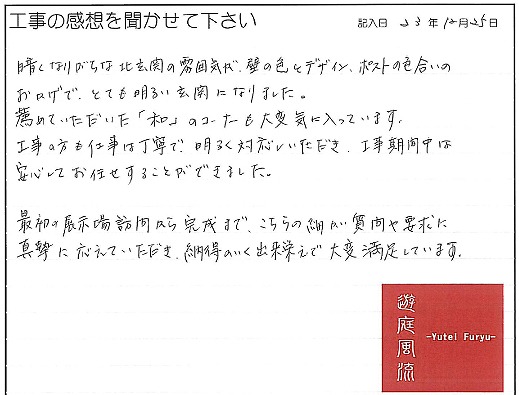 工事の感想を聞かせて下さい
記入日 23年12月25日
暗くなりがちな北玄関の雰囲気が、壁の色とデザイン、ポストの色合いの
おかげで、とても明るい玄関になりました。
薦めていただいた「和」のコーナーも大変気に入っています。
工事の方も仕事は丁寧で明るく対応いただき、工事期間中は
安心してお任せすることができました。
最初の展示場訪問から完成まで、こちらの細かい質問や要求に
真摯に応えていただき、納得のいく出来栄えで大変満足しています。
遊庭風流
-Yutei Furyu-